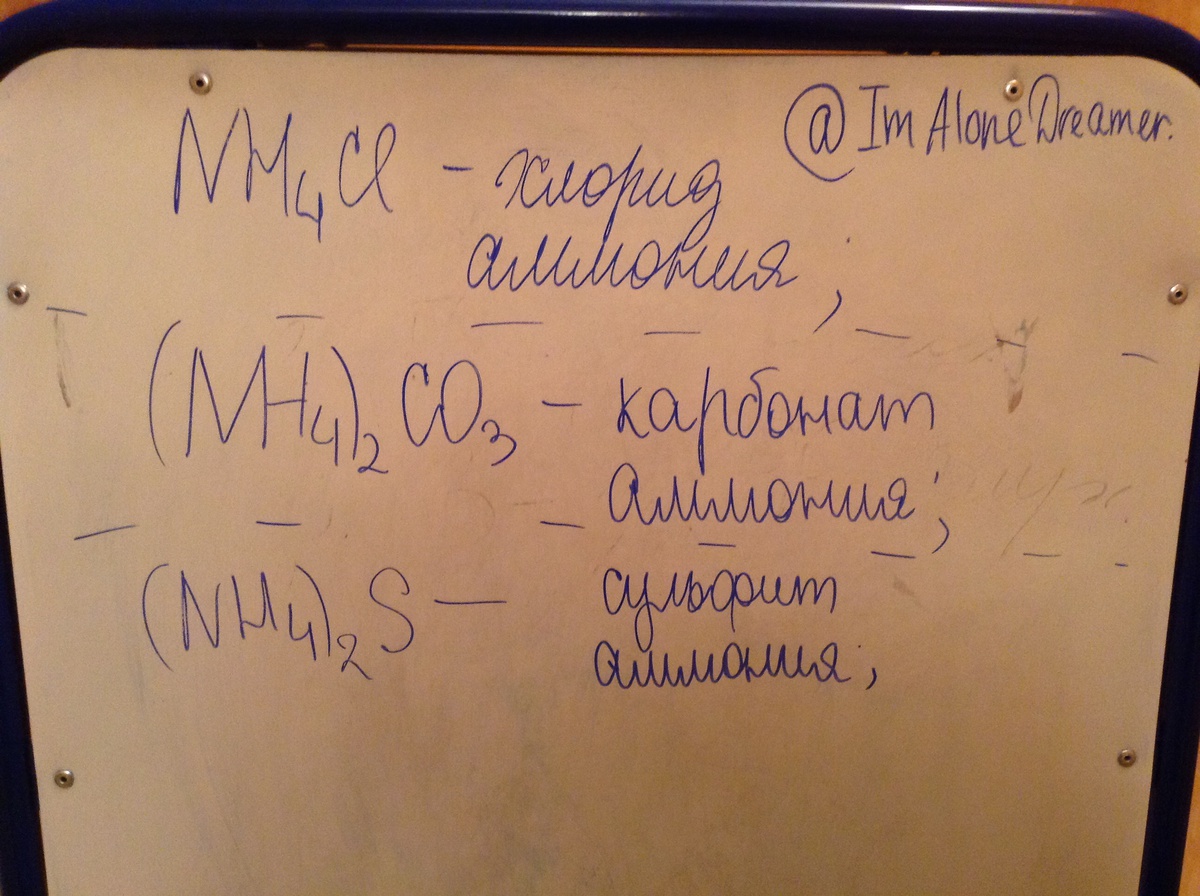 @ImAloneDreamer.
NH₄Cl - хлорид
аммония;
(NH₄)₂CO₃ - карбонат
аммония;
(NH₄)₂S - сульфит
аммония;